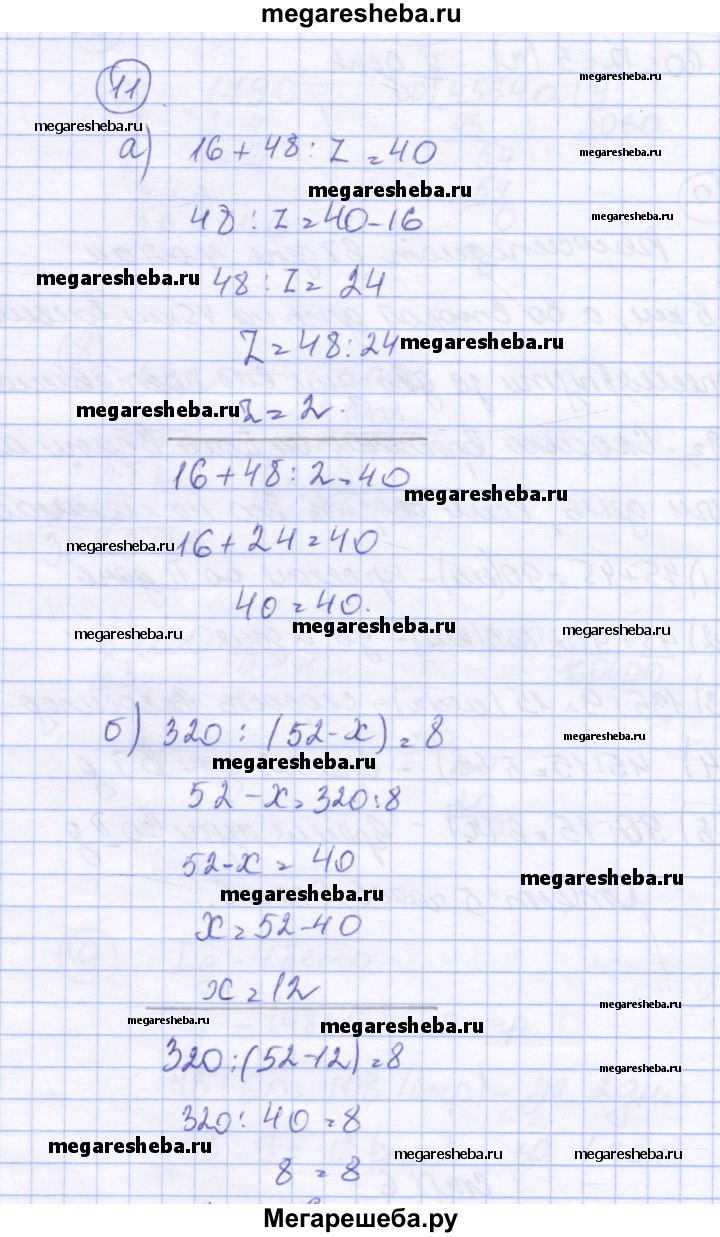 megaresheba.ru
11
megaresheba.ru
megaresheba.ru
а) 16 + 48 : Z = 40
megaresheba.ru
megaresheba.ru
48 : Z = 40 - 16
megaresheba.ru
megaresheba.ru
48 : Z = 24
Z = 48 : 24
megaresheba.ru
megaresheba.ru
Z = 2.
16 + 48 : 2 = 40
megaresheba.ru
megaresheba.ru
16 + 24 = 40
40 = 40.
megaresheba.ru
megaresheba.ru
megaresheba.ru
б) 320 : (52 - x) = 8
megaresheba.ru
megaresheba.ru
52 - x = 320 : 8
52 - x = 40
megaresheba.ru
megaresheba.ru
x = 52 - 40
x = 12
megaresheba.ru
megaresheba.ru
megaresheba.ru
320 : (52 - 12) = 8
megaresheba.ru
320 : 40 = 8
megaresheba.ru
megaresheba.ru
megaresheba.ru
8 = 8
Мегарешеба.ру